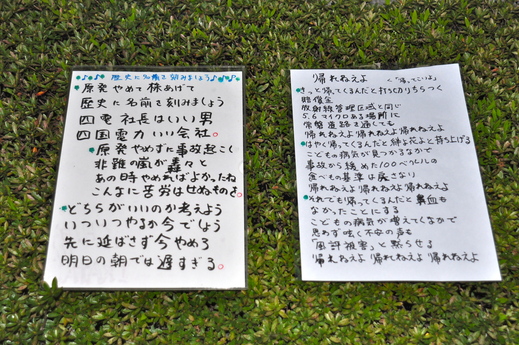 ♪♪♪ 歴史に名前を刻みましょう ♪♪♪
原発やめて株あげて
歴史に名前を刻みましょう
四電社長はいい男
四国電力いい会社。
原発やめずに事故起こく
非難の嵐が轟々と
あの時やめればよかったね
こんなに苦労はせぬものを。
どちらがいいのか考えよう
いつやるか今でしょう
先に延ばさず今やめろ
明日の朝では遅すぎる。
帰れねえよ
きっと帰ってくるんだと
賠償金
放射線管理区域と同じ
5.6マイクロある場所に
常磐道路を通しても
帰れねえよ帰れねえよ帰れねえよ
はやく帰ってくるんだと絆と花よと持ち上げる
こどもの病気が見つかるなかで
事故から緩めた100ベクレルの
食べもの基準は戻さない
帰れねえよ帰れねえよ帰れねえよ
それでも帰ってくるんだと鼻血も
なかったことにする
こどもの病気が増えてくなかで
思わず呟く不安の声を
「風評被害」と黙らせる
帰れねえよ 帰れねえよ 帰れねえよ